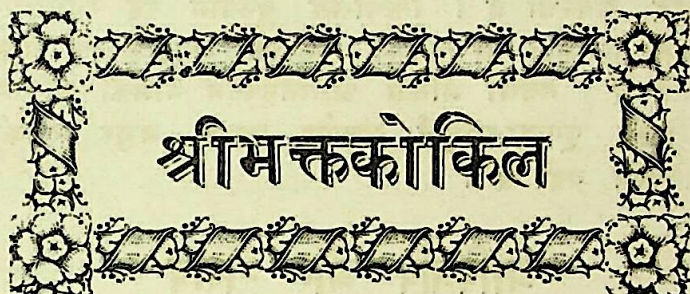 श्रीभक्तकोकिल